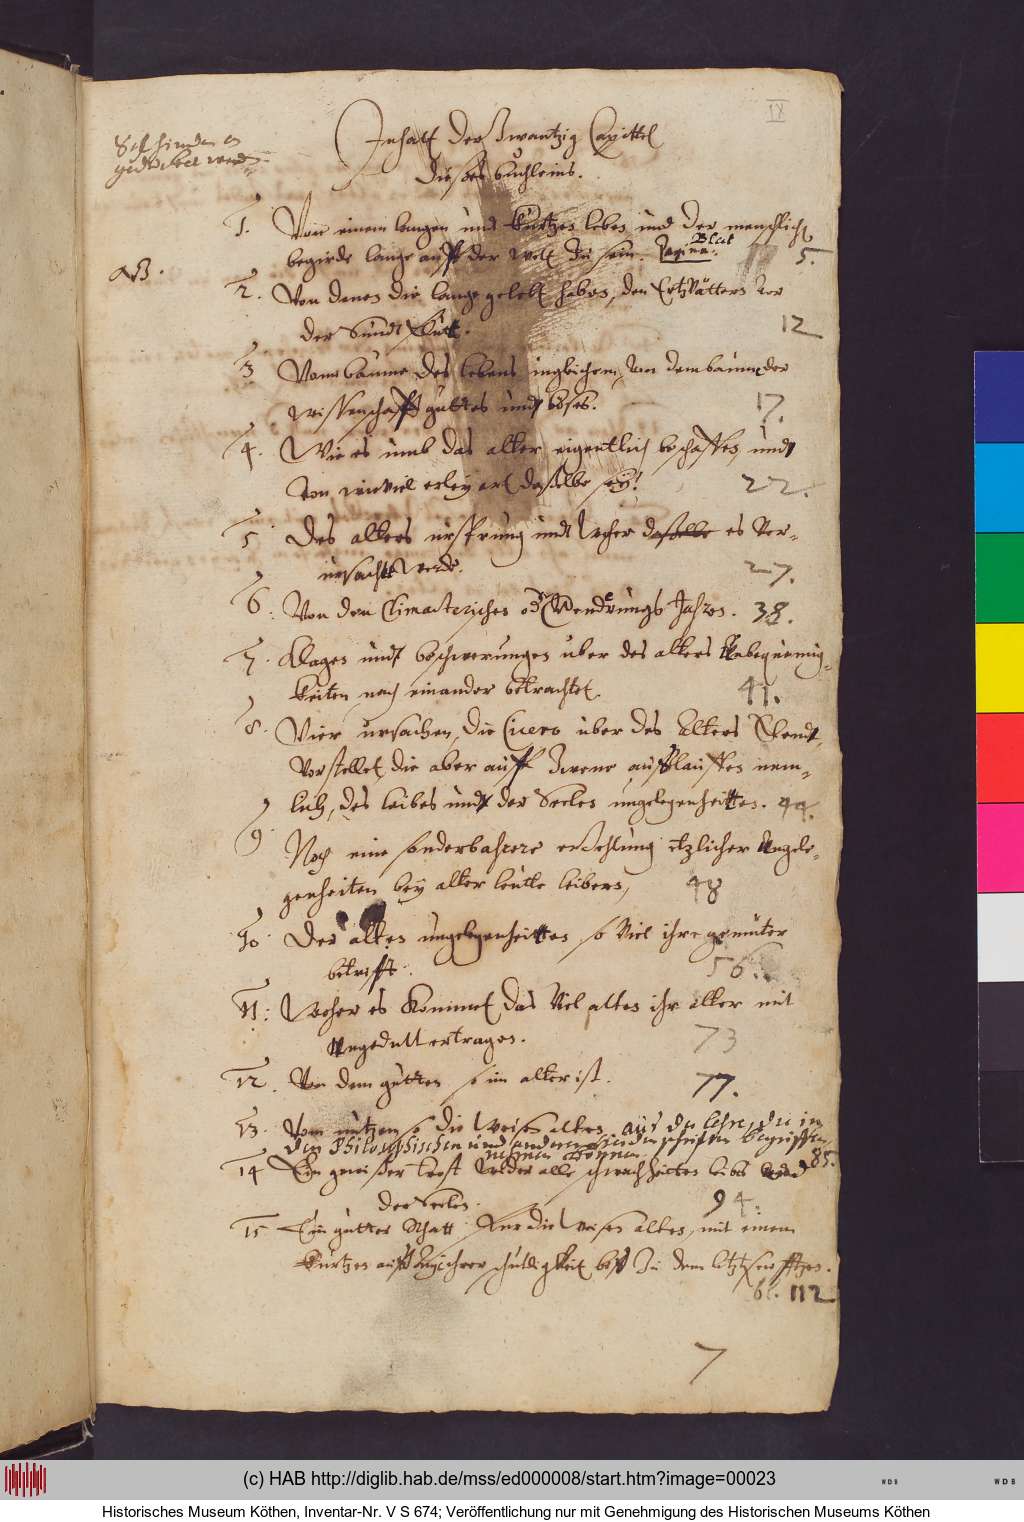 IX
Soll hinden
gedrucket werden
Inhalt der Zwantzig Capittel
dieses buchleins.
1. Von einem langen und kurtzen leben und der menschlich
begirde lange auff der welt zu sein. Pagina. Blat 5.
AB.
2. Von denen die lange gelebt haben, den Ertzvättern vor
der Sündtflutt. 12
3 Vom baume des lebens ingleichem von dem baume der
wissenschafft guttes undt böses. 17.
4. Wie es umb das alter eigentlich beschaffen, undt
von wieviel erley art dasselbe sey? 22.
5 Des alters ursprung undt woher dasselbe es ver-
ursacht werde. 27.
6. Von den Climacterischen oder Wenderungs Jahren. 38.
7. Klagen undt beschwerungen über des alters Unbequemig-
keiten nach einander betrachtet. 41.
8. Vier ursachen, die Cicero über des Alters Elendt
vorstellet, die aber auff zwene außlauffen nem-
lich, des leibes undt der Seelen ungelegenheitten. 44.
9. Noch eine sonderbahrere erzehlung etzlicher Ungele-
genheiten bey alter leutte leibern, 48
10. Der alten ungelegenheitten so viel ihre gemüter
betrifft. 56.
11. Woher es kommet, das viel alten ihr alter mit
Ungedult ertragen. 73
12. Von dem gutten so im alter ist. 77.
13. Vom nutzen so die weisen alten aus der lehre, die in
den Philosophischen und anderen schriften begriffen,
nehmen können. 85.
14 Ein gewisser trost wieder alle schwachheitten leibes und
der Seelen. 94.
15 Ein gutter Rhatt für die weisen alten, mit einem
kurtzen auß ihrer schuldigkeit biß zu dem letzten seufftzen.
bl. 112
7
(c) HAB http://diglib.hab.de/mss/ed000008/start.htm?image=00023
Historisches Museum Köthen, Inventar-Nr. V S 674; Veröffentlichung nur mit Genehmigung des Historischen Museums Köthen